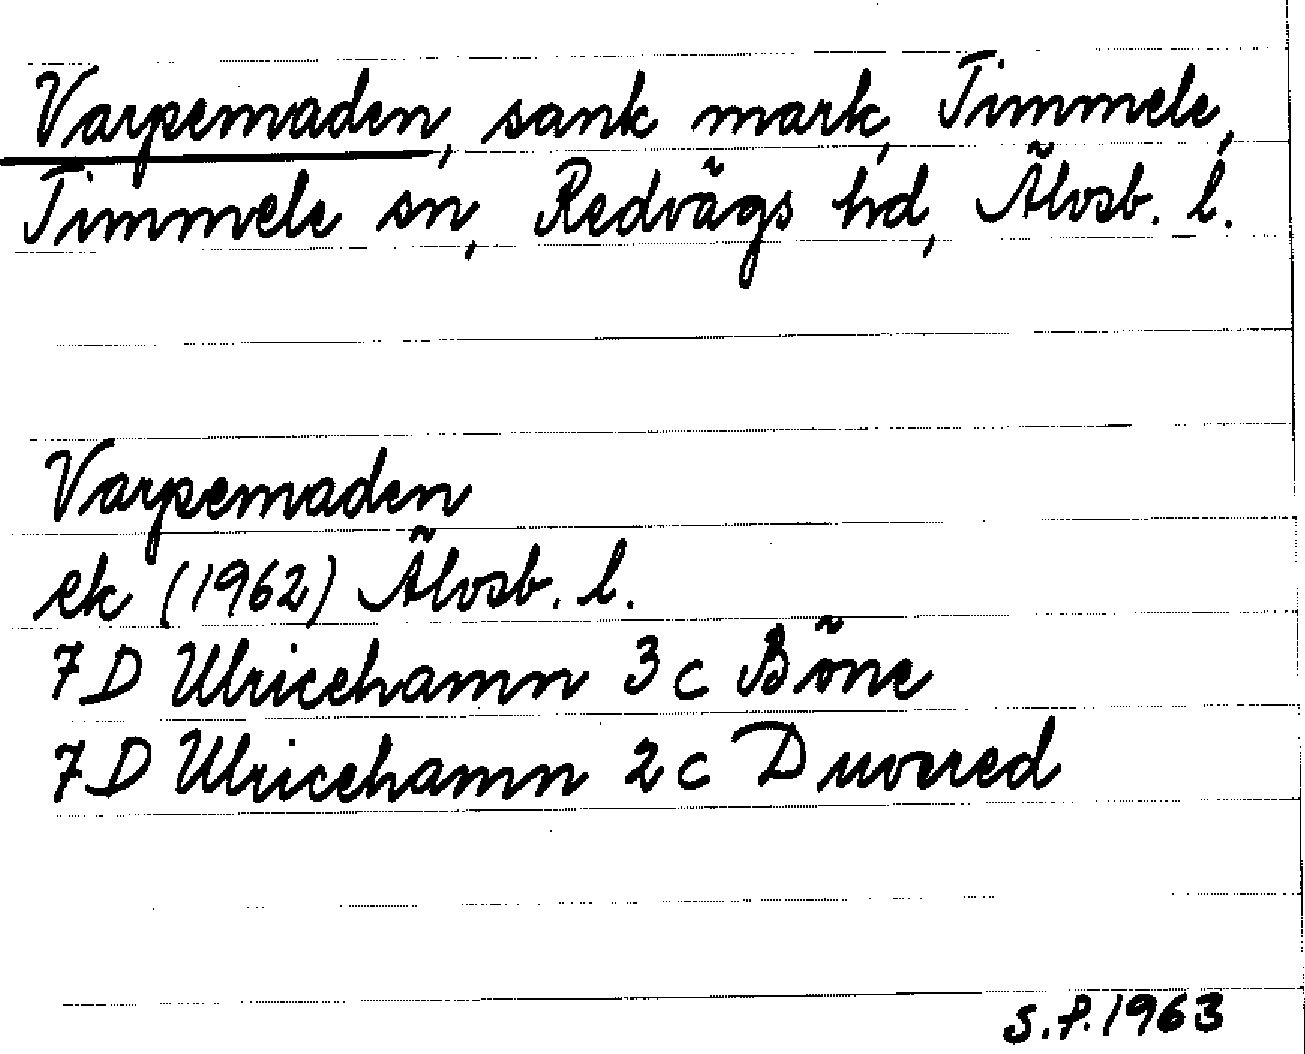 Varpemaden, sank mark, Timmele,
Timmele sn, Redvägs hd, Älvsb. l.
Varpemaden
ek (1962) Älvsb. l.
7D Ulricehamn 3c Böne
7D Ulricehamn 2c Duvered
S.P. 1963